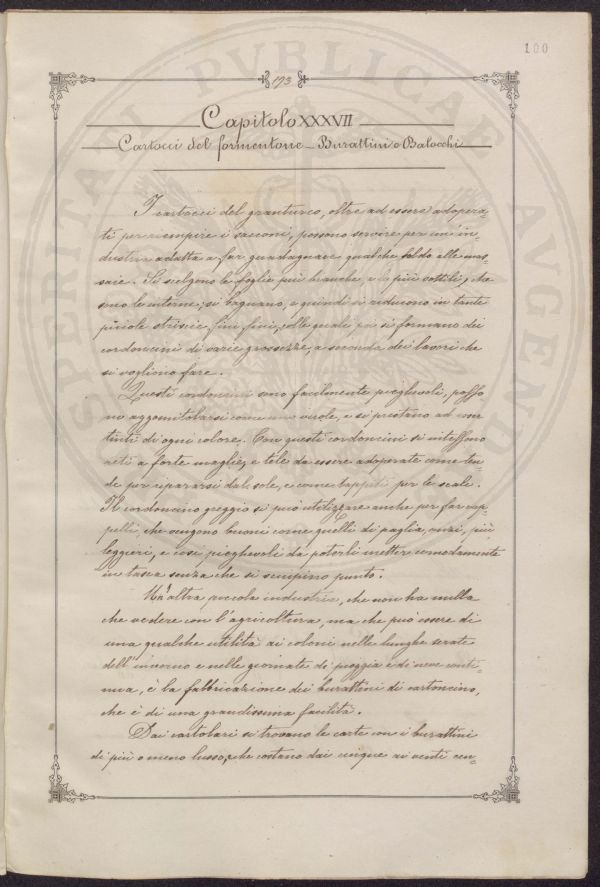 100
193
Capitolo XXXVII
Cartocci del formentone _ Burattini o Balocchi
I cartocci del granturco, oltre ad essere adopera-
ti per riempire i sacconi, possono servire per un'in-
dustria adatta a far guadagnare qualche soldo alle mas-
saie. Si scelgono le foglie più bianche, e le più sottili, che
sono le interne; si bagnano, e quindi si riducono in tante
piccole striscie, fini, fini, colle quali poi si formano dei
cordoncini di varie grossezze, a seconda dei lavori che
si vogliono fare.
Questi cordoncini sono facilmente pieghevoli, posso
no aggomitolarsi come uno vuole, e si prestano ad esser
tinti di ogni colore. Con questi cordoncini si intessono
reti a forte maglie, e tele da essere adoperate come ten-
de per ripararsi dal sole, e come tappeti per le scale.
Il cordoncino greggio si può utilizzare anche per far cap-
pelli, che vengono buoni come quelli di paglia, anzi, più
leggieri, e così pieghevoli da poterli metter comodamente
in tasca senza che si sciupino punto.
Un'altra piccola industria, che non ha nulla
che vedere con l'agricoltura, ma che può essere di
una qualche utilità ai coloni nelle lunghe serate
dell'inverno e nelle giornate di pioggia e di neve conti-
nua, è la fabbricazione dei burattini di cartoncino,
che è di una grandissima facilità.
Dai cartolari si trovano le carte con i burattini
di più o meno lusso, che costano dai cinque ai venti cen-
PROSPERITATI PVBLICAE AVGENDAE